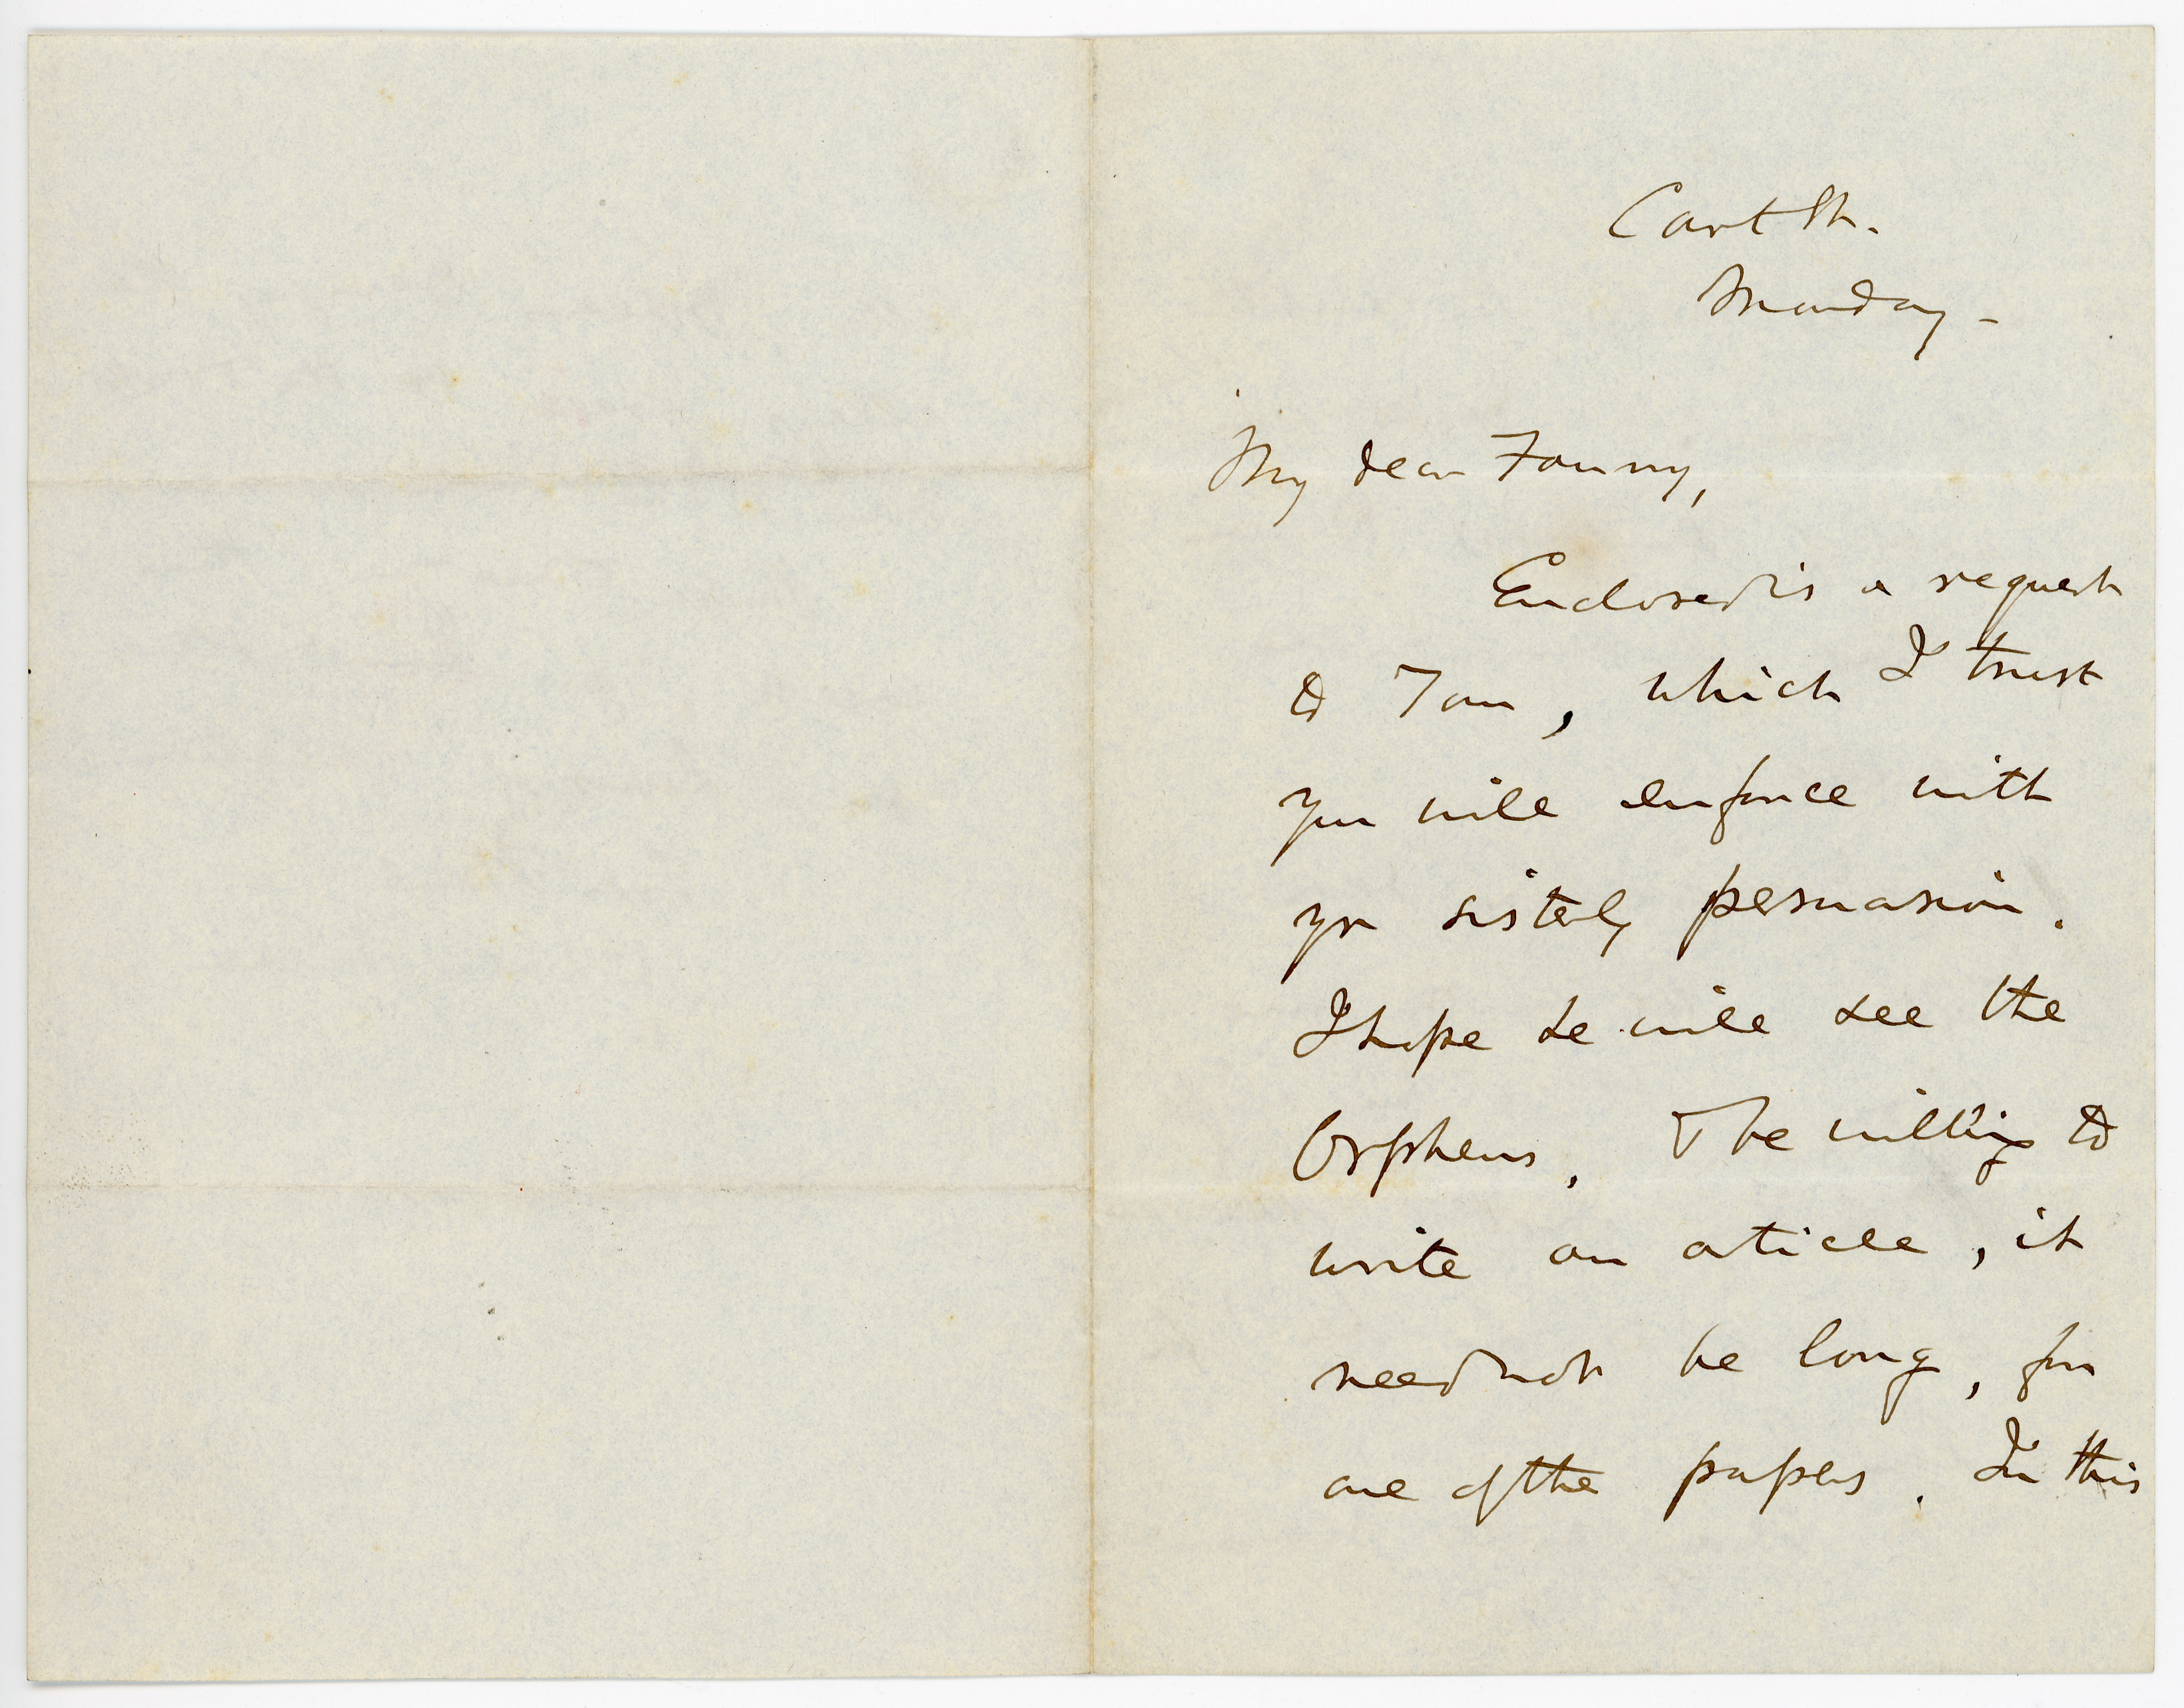 Court St.
Monday -
My dear Fanny,
Enclosed is a request
to Tom, which I trust
you will enforce with
yr sisterly persuasion.
I hope he will see the
Orpheus, & be willing to
write an article, it
need not be long, for
one of the papers. In this